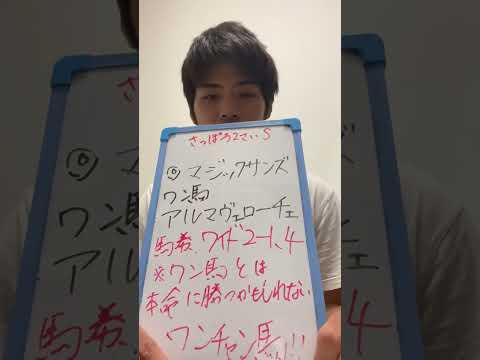 さっぽろ2さいS
◎マジックサンズ
ワン馬
アルマヴェローチェ
馬券.ワイド2-1、4
※ワン馬とは
本命に勝つかもしれない
ワンチャン馬